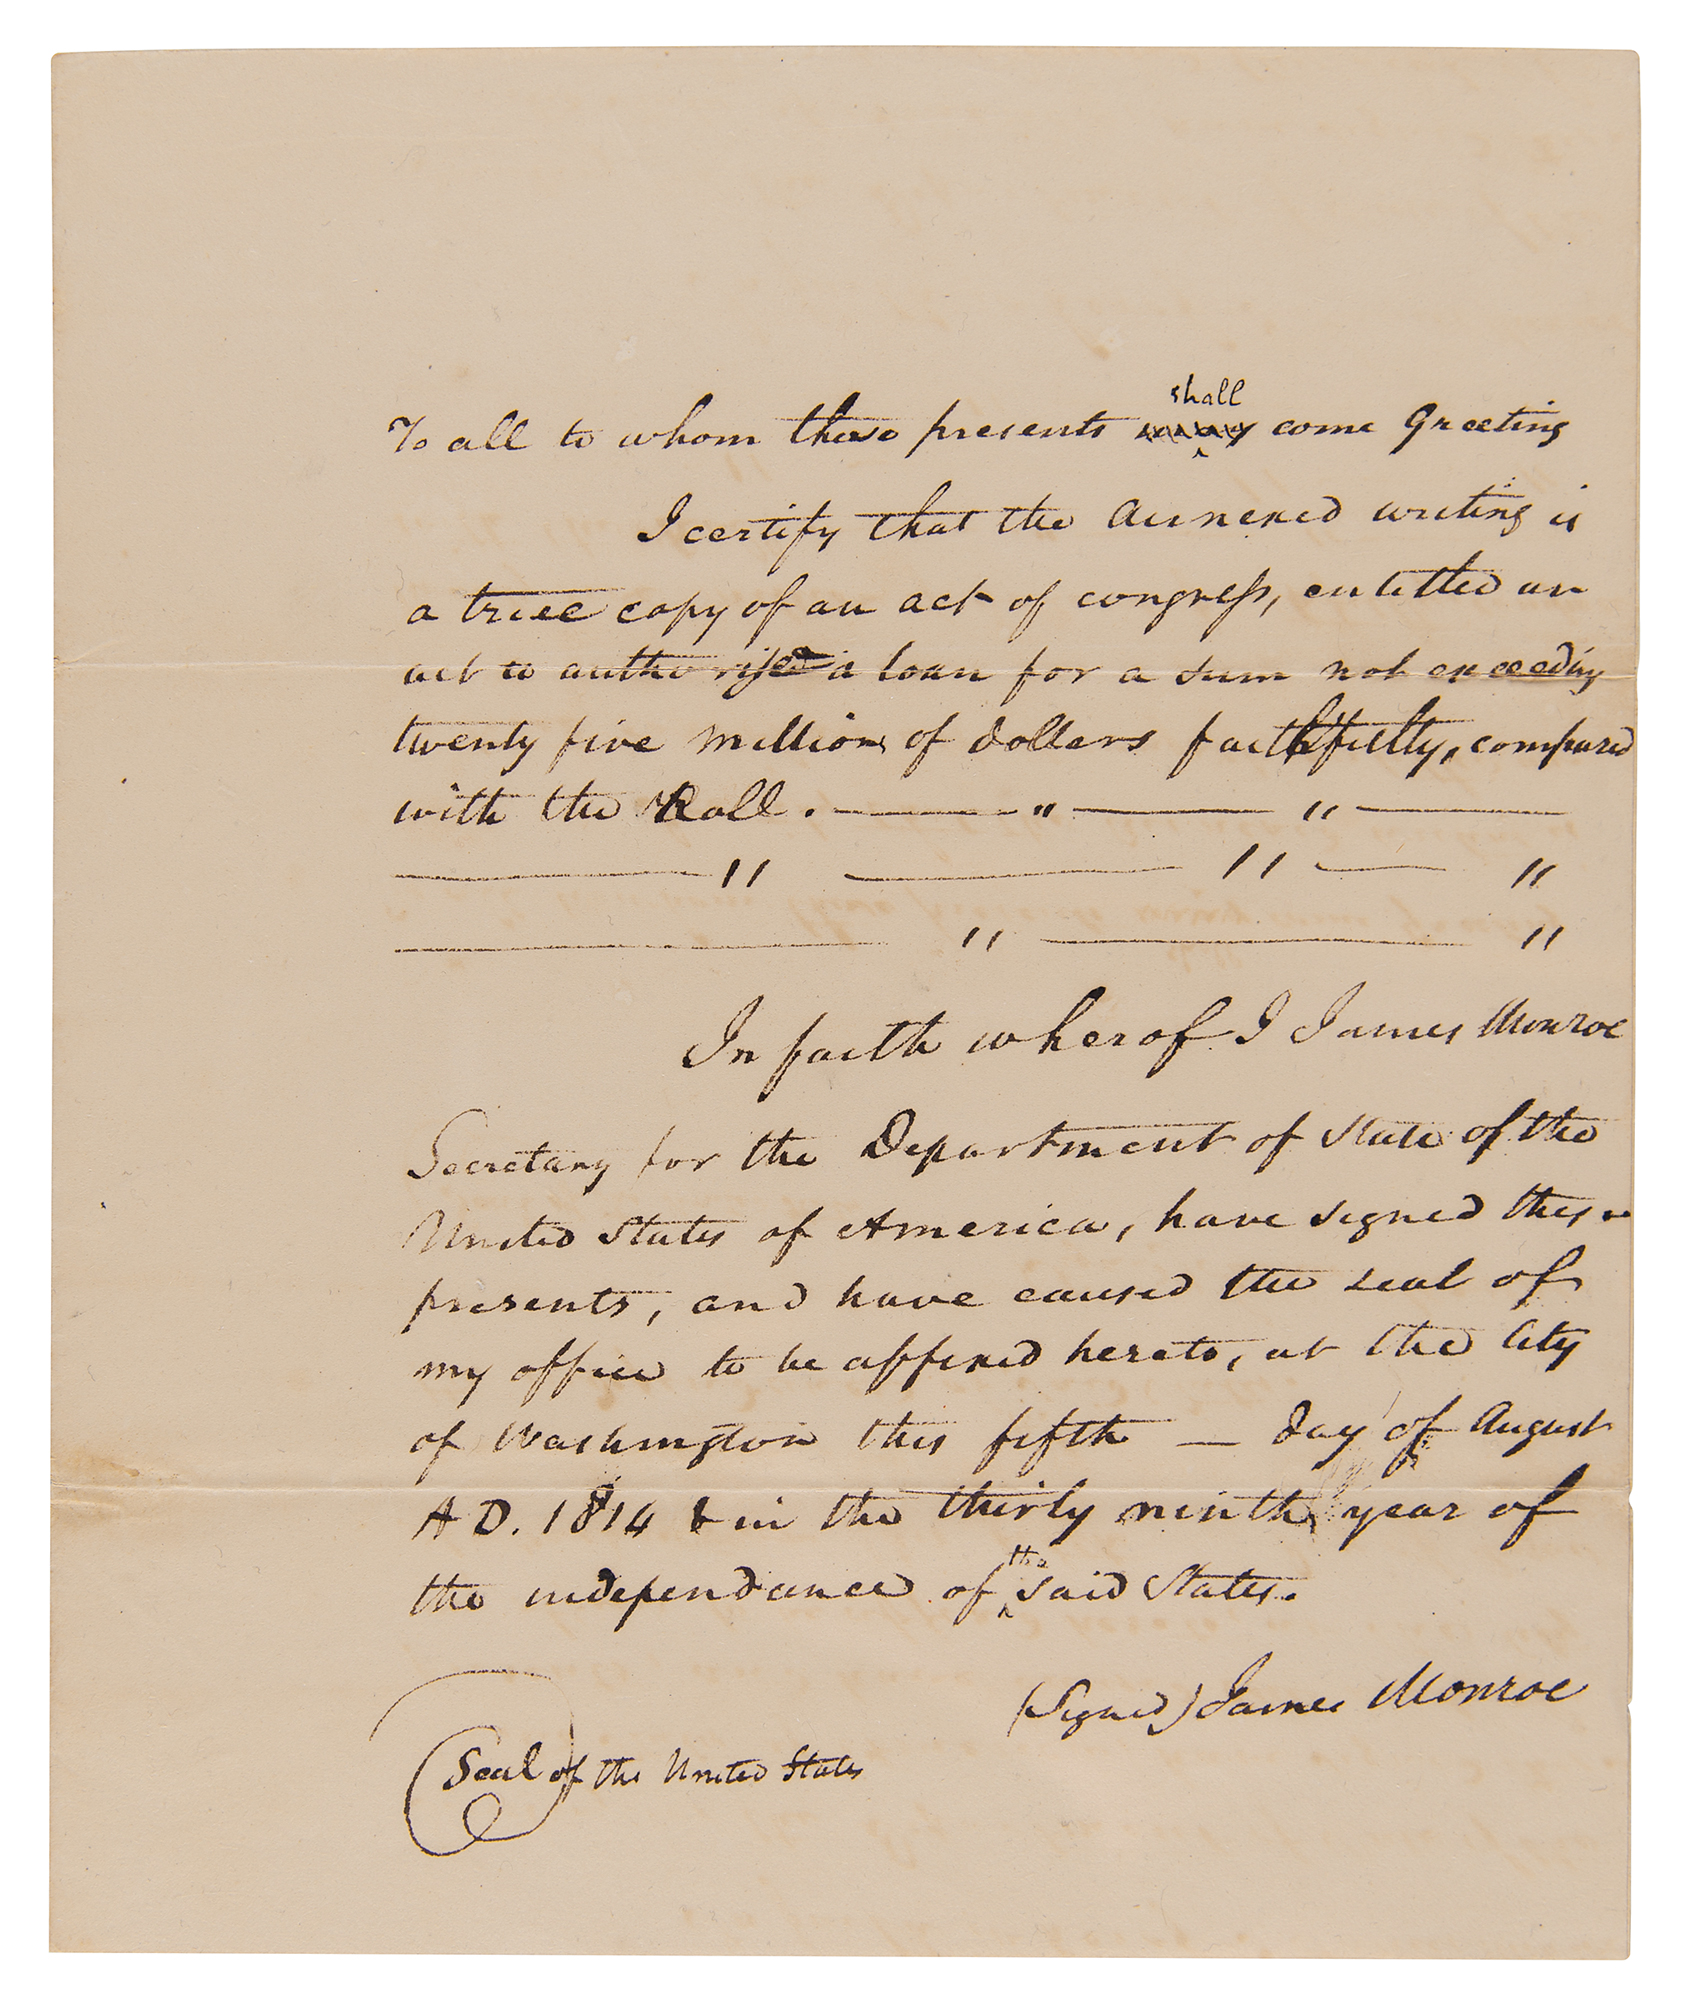 To all to whom these presents ~~may~~ shall come Greeting
I certify that the annexed writing is
a true copy of an act of congress, entitled an
act to authorise a loan for a sum not exceeding
twenty five millions of dollars faithfully, compared
with the Roll. — " — " —
— " — " — "
— " — "
In faith wherof I James Monroe
Secretary for the Department of State of the
United States of America, have signed these
presents, and have caused the seal of
my office to be affixed hereto, at the City
of Washington this fifth — day of August
A D. 1814 & in the thirty ninth year of
the independance of the said States.
(Signed) James Monroe
Seal of the United States